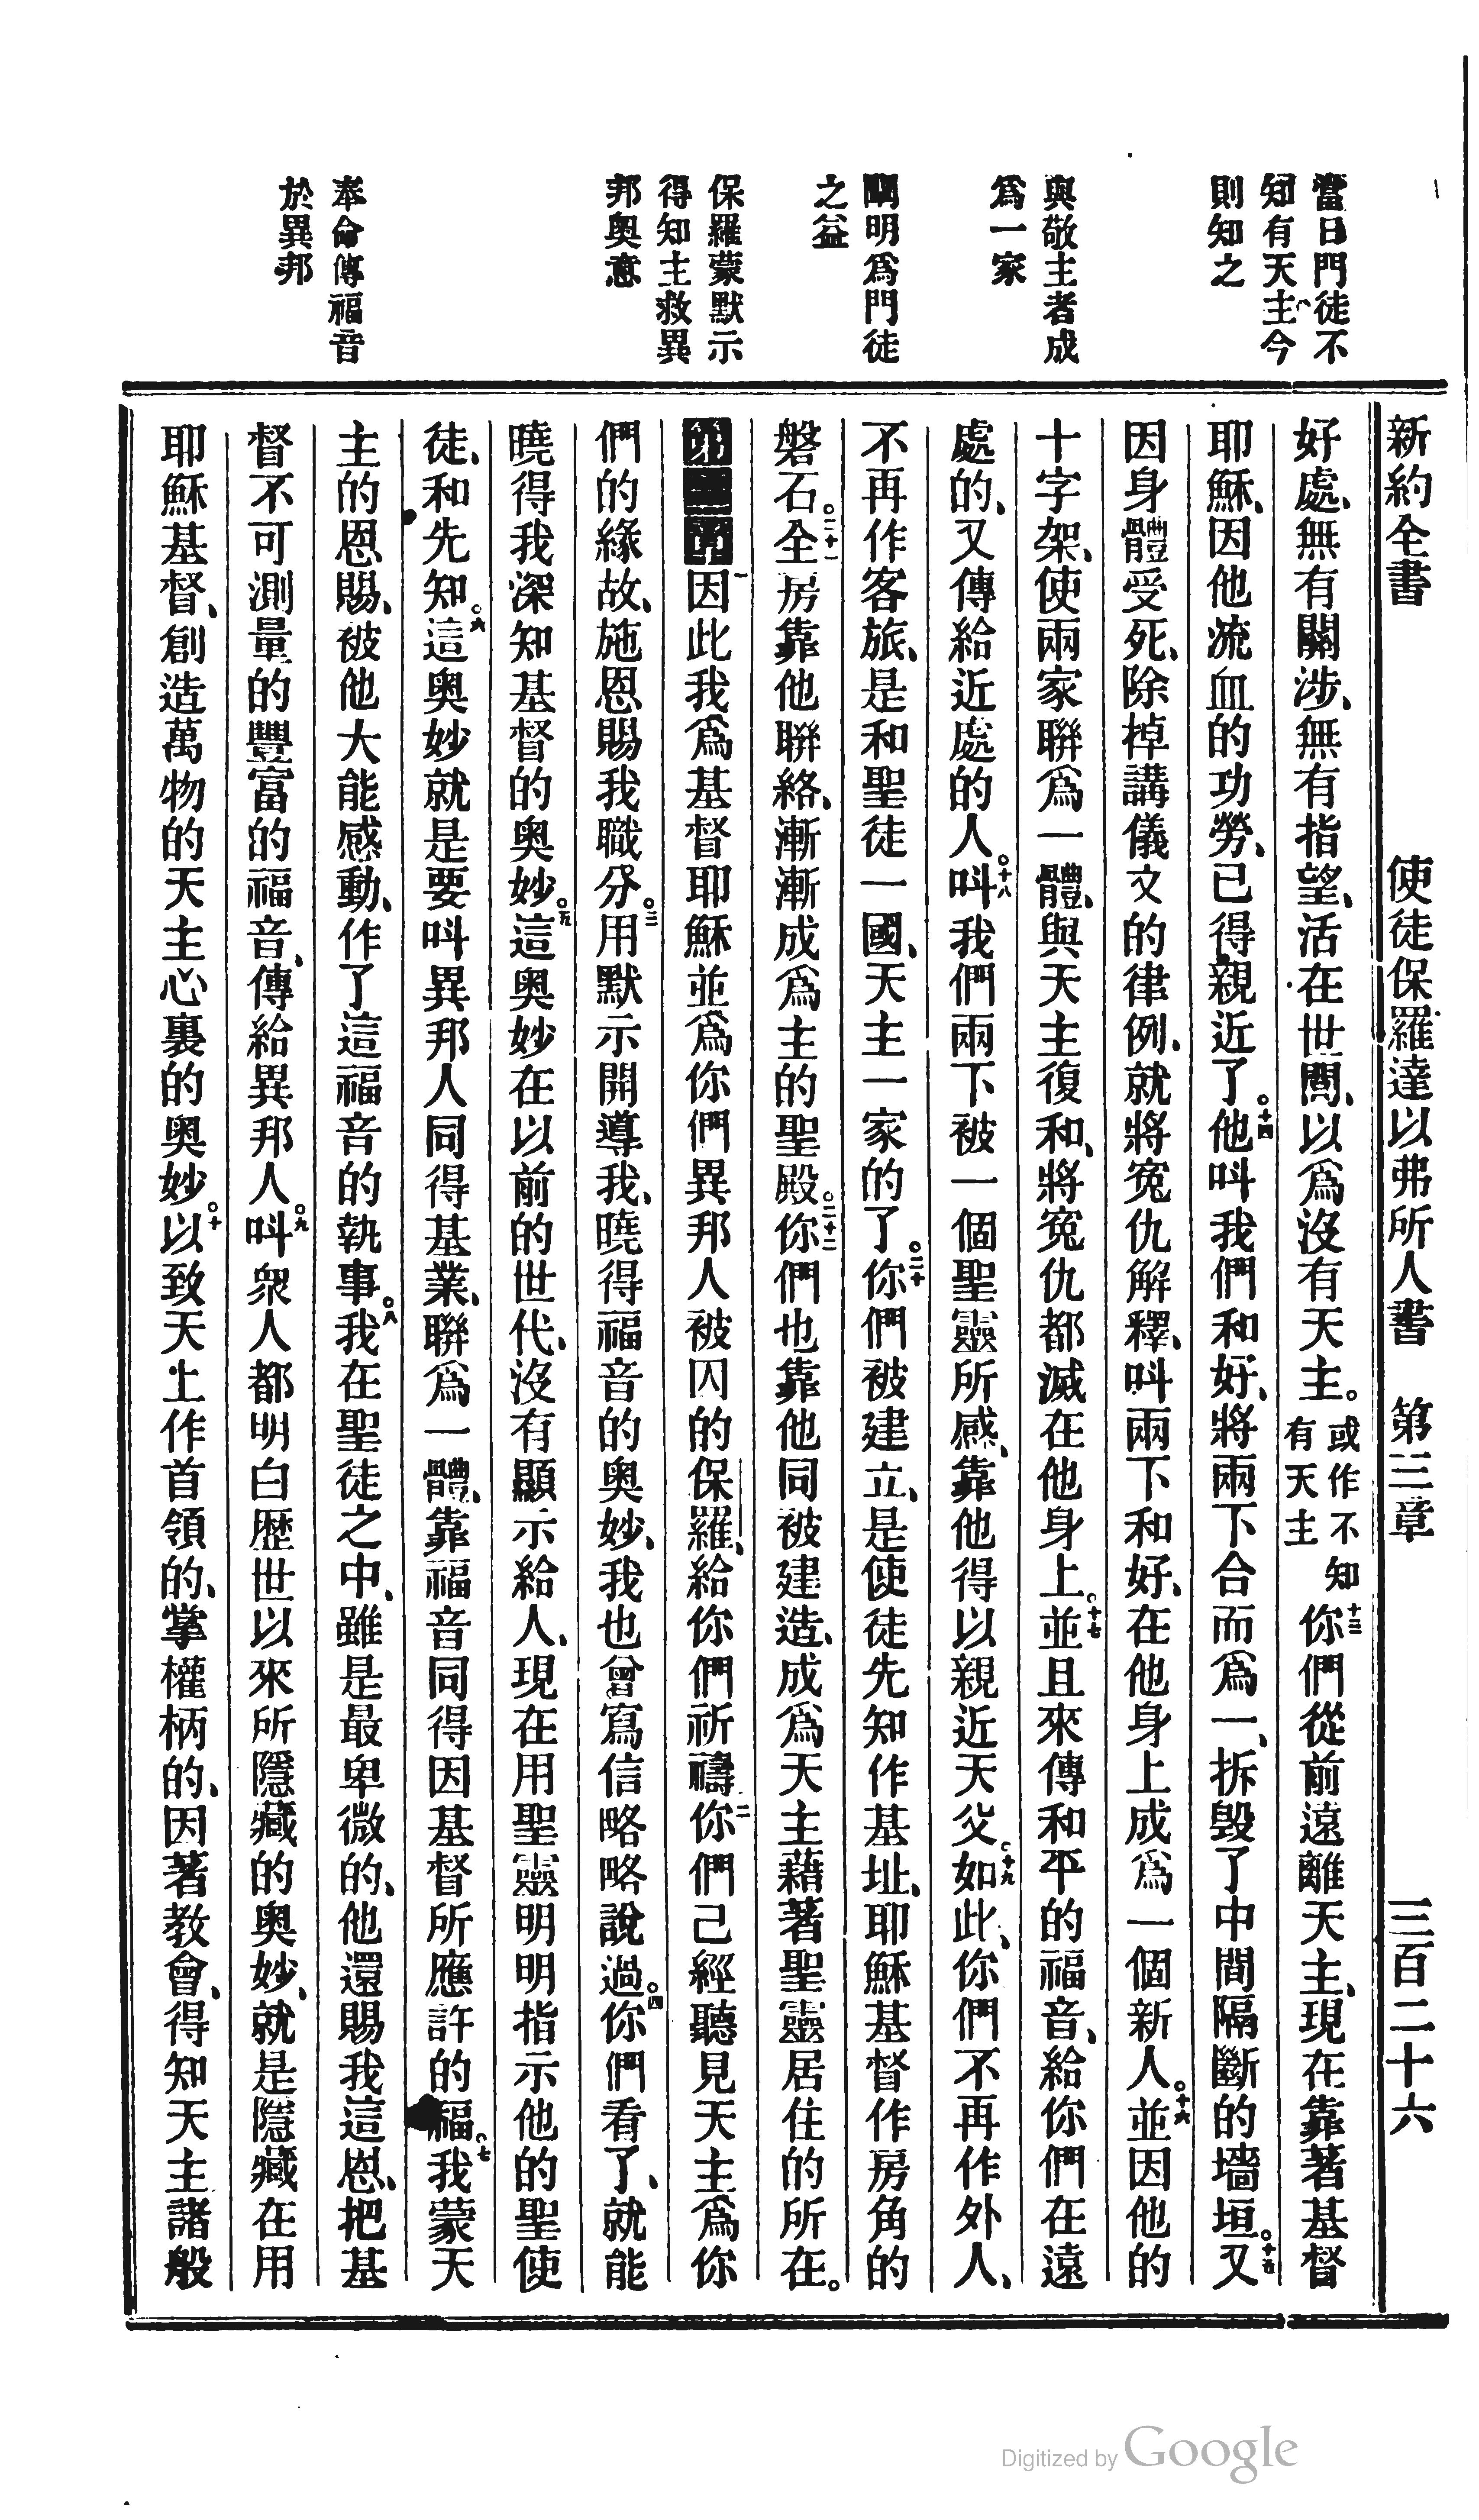 新約全書　使徒保羅達以弗所人書　第三章　三百二十六
當日門徒不
知有天主今
則知之
與敬主者成
爲一家
闡明爲門徒
之益
保羅蒙默示
得知主救異
邦奧意
奉命傳福音
於異邦
好處、無有關涉、無有指望、活在世間、以爲沒有天主。或作不知有天主十三你們從前遠離天主、現在靠著基督
耶穌、因他流血的功勞、已得親近了。十四他叫我們和好、將兩下合而爲一、拆毀了中間隔斷的墻垣。十五又
因身體受死、除掉講儀文的律例、就將寃仇解釋、叫兩下和好、在他身上成爲一個新人。十六並因他的
十字架、使兩家聯爲一體、與天主復和、將寃仇都滅在他身上。十七並且來傳和平的福音、給你們在遠
處的、又傳給近處的人。十八叫我們兩下被一個聖靈所感、靠他得以親近天父。十九如此、你們不再作外人、
不再作客旅、是和聖徒一國、天主一家的了。二十你們被建立、是使徒先知作基址、耶穌基督作房角的
磐石。二十一全房靠他聯絡、漸漸成爲主的聖殿。二十二你們也靠他同被建造、成爲天主藉著聖靈居住的所在。
第三章一因此我爲基督耶穌並爲你們異邦人被囚的保羅、給你們祈禱二你們己經聽見天主爲你
們的緣故、施恩賜我職分。三用默示開導我、曉得福音的奧妙、我也曾寫信略略說過。四你們看了、就能
曉得我深知基督的奧妙。五這奧妙在以前的世代、沒有顯示給人、現在用聖靈明明指示他的聖使
徒、和先知。六這奧妙就是要叫異邦人同得基業、聯爲一體、靠福音同得因基督所應許的福。七我蒙天
主的恩賜、被他大能感動、作了這福音的執事。八我在聖徒之中、雖是最卑微的、他還賜我這恩、把基
督不可測量的豐富的福音、傳給異邦人。九叫衆人都明白歷世以來所隱藏的奧妙、就是隱藏在用
耶穌基督、創造萬物的天主心裏的奧妙。十以致天上作首領的、掌權柄的、因著教會、得知天主諸般
Digitized by Google